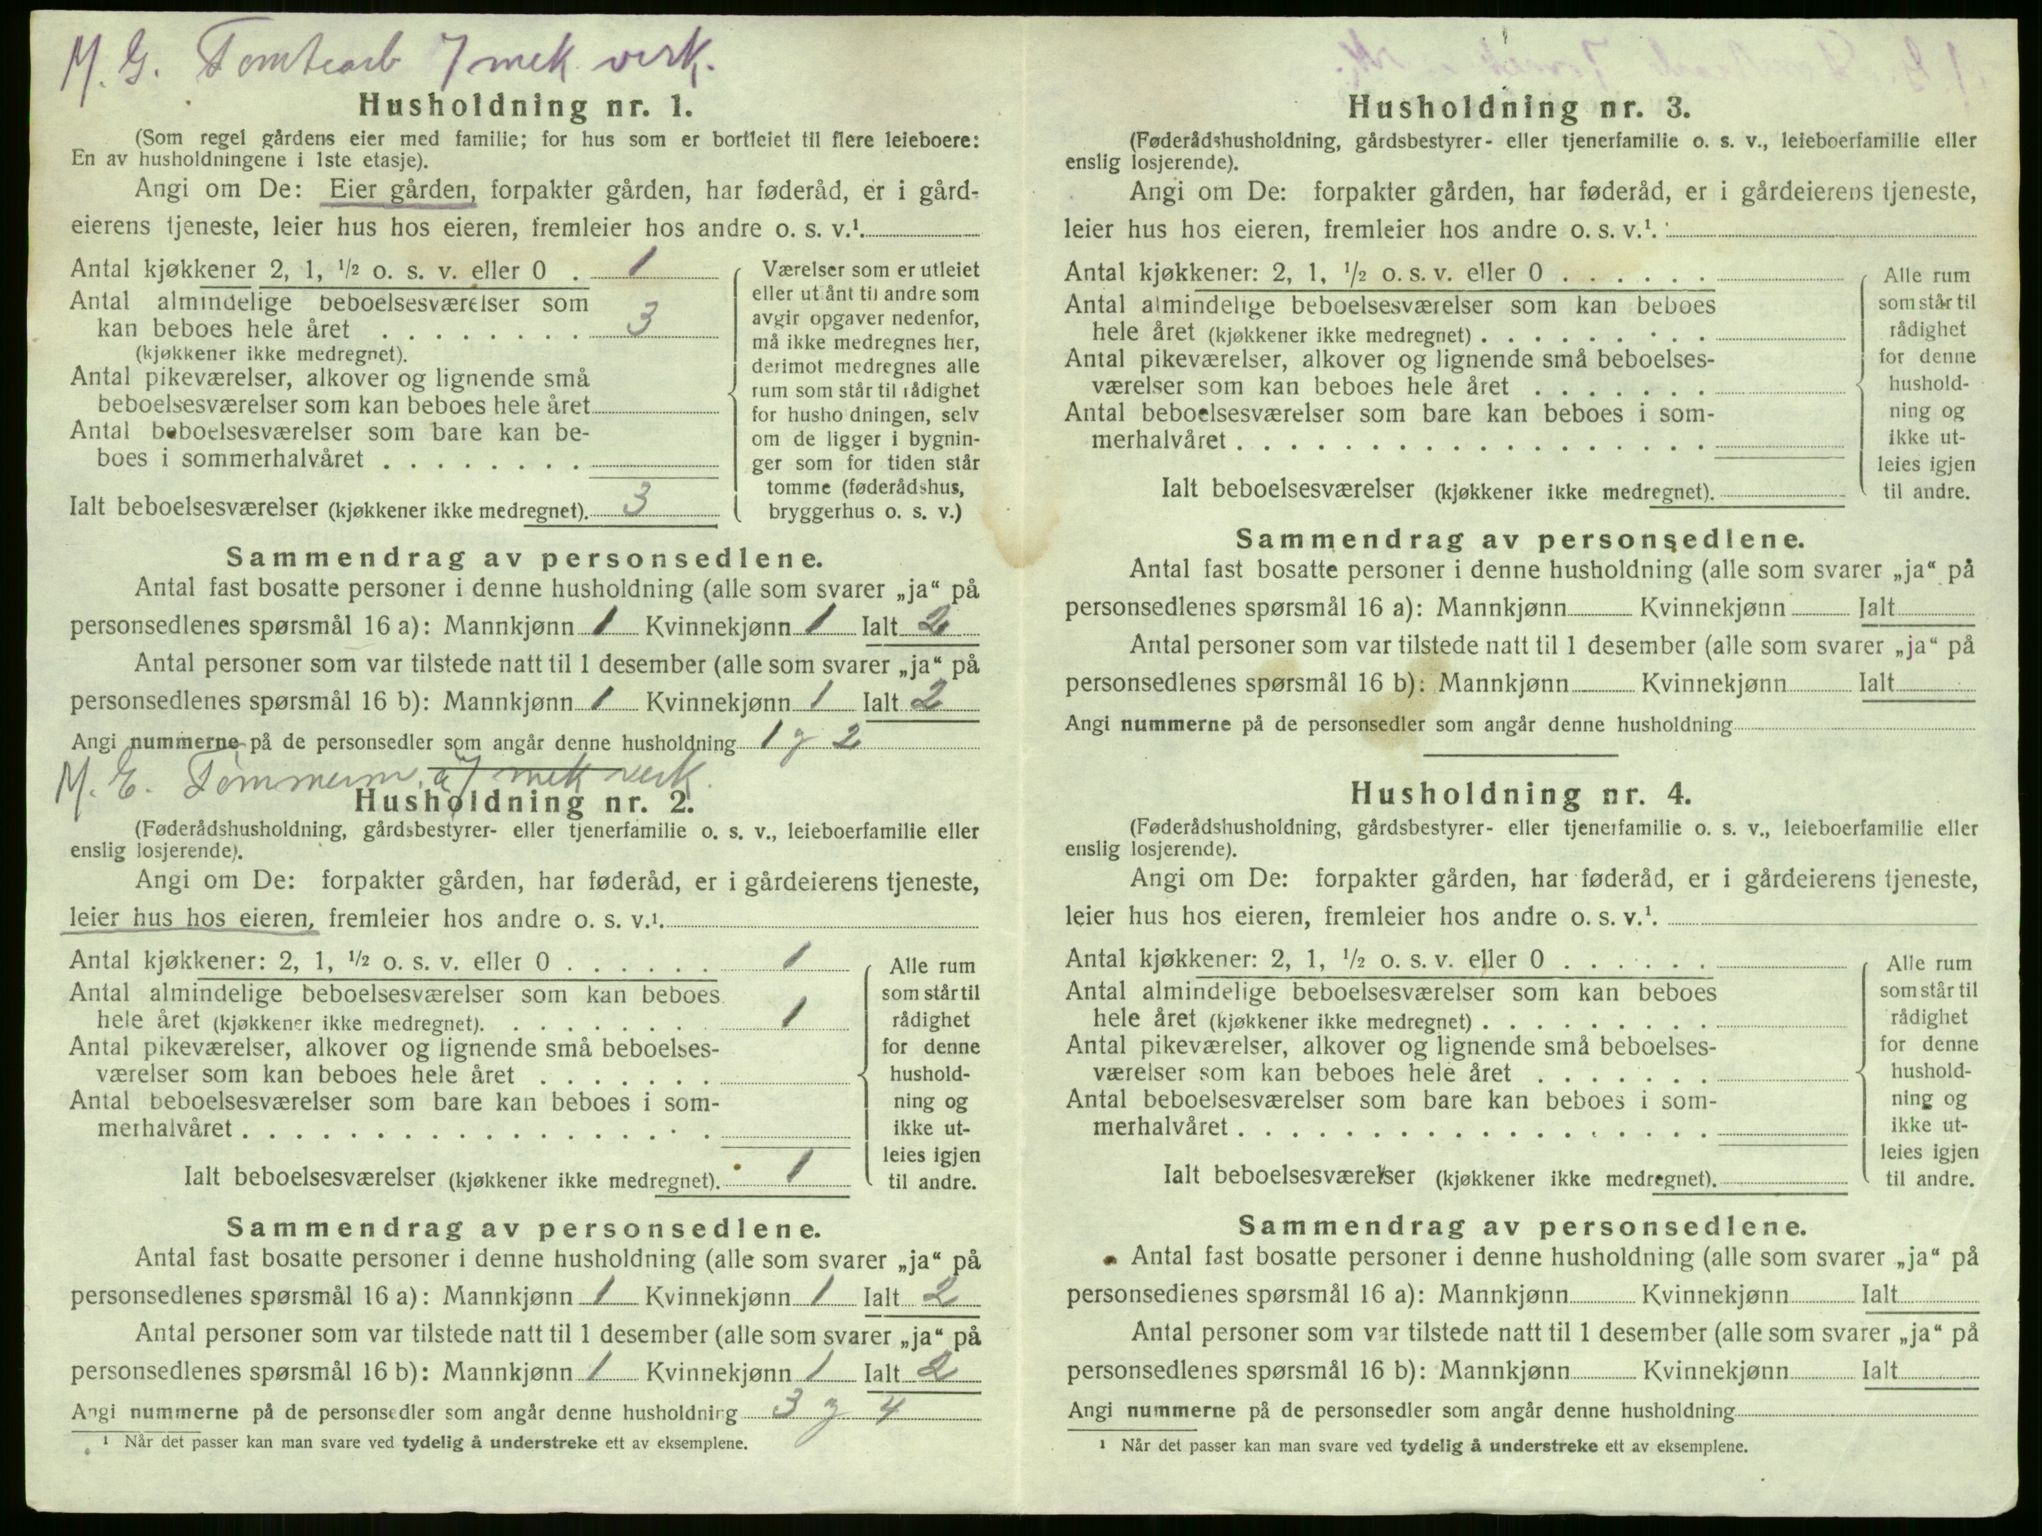 M. G. Tomtearb 7 mek verk.
Husholdning nr. 1.
(Som regel gårdens eier med familie; for hus som er bortleiet til flere leieboere:
En av husholdningene i 1ste etasje).
Angi om De: Eier gården, forpakter gården, har føderåd, er i gård-
eierens tjeneste, leier hus hos eieren, fremleier hos andre o. s. v.¹
Antal kjøkkener 2, 1, ½ o. s. v. eller 0 . 1
Antal almindelige beboelsesværelser som
kan beboes hele året . . . . . . . . 3
(kjøkkener ikke medregnet).
Antal pikeværelser, alkover og lignende små
beboelsesværelser som kan beboes hele året
Antal beboelsesværelser som bare kan be-
boes i sommerhalvåret . . . . . . . .
Ialt beboelsesværelser (kjøkkener ikke medregnet). 3
Værelser som er utleiet
eller utlånt til andre som
avgir opgaver nedenfor,
må ikke medregnes her,
derimot medregnes alle
rum som står til rådighet
for husholdningen, selv
om de ligger i bygnin-
ger som for tiden står
tomme (føderådshus,
bryggerhus o. s. v.)
Sammendrag av personsedlene.
Antal fast bosatte personer i denne husholdning (alle som svarer „ja“ på
personsedlenes spørsmål 16 a): Mannkjønn 1 Kvinnekjønn 1 Ialt 2
Antal personer som var tilstede natt til 1 desember (alle som svarer „ja“ på
personsedlenes spørsmål 16 b): Mannkjønn 1 Kvinnekjønn 1 Ialt 2
Angi nummerne på de personsedler som angår denne husholdning 1 g 2
M. E. Tømmerm. 7 mek verk.
Husholdning nr. 2.
(Føderådshusholdning, gårdsbestyrer- eller tjenerfamilie o. s. v., leieboerfamilie eller
enslig losjerende).
Angi om De: forpakter gården, har føderåd, er i gårdeierens tjeneste,
leier hus hos eieren, fremleier hos andre o. s. v.¹
Antal kjøkkener: 2, 1, ½ o. s. v. eller 0 . . . . . . 1
Antal almindelige beboelsesværelser som kan beboes
hele året (kjøkkener ikke medregnet). . . . . . . . . 1
Antal pikeværelser, alkover og lignende små beboelses-
værelser som kan beboes hele året . . . . . . .
Antal beboelsesværelser som bare kan beboes i som-
merhalvåret . . . . . . . . . . . . . . . . . .
Ialt beboelsesværelser (kjøkkener ikke medregnet). 1
Alle rum
som står til
rådighet
for denne
hushold-
ning og
ikke ut-
leies igjen
til andre.
Sammendrag av personsedlene.
Antal fast bosatte personer i denne husholdning (alle som svarer „ja“ på
personsedlenes spørsmål 16 a): Mannkjønn 1 Kvinnekjønn 1 Ialt 2
Antal personer som var tilstede natt til 1 desember (alle som svarer „ja“ på
personsedlenes spørsmål 16 b): Mannkjønn 1 Kvinnekjønn 1 Ialt 2
Angi nummerne på de personsedler som angår denne husholdning 3 g 4
¹ Når det passer kan man svare ved tydelig å understreke ett av eksemplene.
Husholdning nr. 3.
(Føderådshusholdning, gårdsbestyrer- eller tjenerfamilie o. s. v., leieboerfamilie eller
enslig losjerende).
Angi om De: forpakter gården, har føderåd, er i gårdeierens tjeneste,
leier hus hos eieren, fremleier hos andre o. s. v.¹.
Antal kjøkkener: 2, 1, ½ o. s. v. eller 0 . . . . . .
Antal almindelige beboelsesværelser som kan beboes
hele året (kjøkkener ikke medregnet) . . . . . . . . . .
Antal pikeværelser, alkover og lignende små beboelses-
værelser som kan beboes hele året . . . . . . .
Antal beboelsesværelser som bare kan beboes i som-
merhalvåret . . . . . . . . . . . . . . . . . .
Ialt beboelsesværelser (kjøkkener ikke medregnet).
Alle rum
som står til
rådighet
for denne
hushold-
ning og
ikke ut-
leies igjen
til andre.
Sammendrag av personsedlene.
Antal fast bosatte personer i denne husholdning (alle som svarer „ja“ på
personsedlenes spørsmål 16 a): Mannkjønn Kvinnekjønn Ialt
Antal personer som var tilstede natt til 1 desember (alle som svarer „ja“ på
personsedlenes spørsmål 16 b): Mannkjønn Kvinnekjønn Ialt
Angi nummerne på de personsedler som angår denne husholdning
Husholdning nr. 4.
(Føderådshusholdning, gårdsbestyrer- eller tjenerfamilie o. s. v., leieboerfamilie eller
enslig losjerende).
Angi om De: forpakter gården, har føderåd, er i gårdeierens tjeneste,
leier hus hos eieren, fremleier hos andre o. s. v.¹.
Antal kjøkkener: 2, 1, ½ o. s. v. eller 0 . . . . . .
Antal almindelige beboelsesværelser som kan beboes
hele året (kjøkkener ikke medregnet) . . . . . . . . . .
Antal pikeværelser, alkover og lignende små beboelses-
værelser som kan beboes hele året . . . . . . .
Antal beboelsesværelser som bare kan beboes i som-
merhalvåret . . . . . . . . . . . . . . . . . .
Ialt beboelsesværelser (kjøkkener ikke medregnet).
Alle rum
som står til
rådighet
for denne
hushold-
ning og
ikke ut-
leies igjen
til andre.
Sammendrag av personsedlene.
Antal fast bosatte personer i denne husholdning (alle som svarer „ja“ på
personsedlenes spørsmål 16 a): Mannkjønn Kvinnekjønn Ialt
Antal personer som var tilstede natt til 1 desember (alle som svarer „ja“ på
personsedlenes spørsmål 16 b): Mannkjønn Kvinnekjønn Ialt
Angi nummerne på de personsedler som angår denne husholdning
¹ Når det passer kan man svare ved tydelig å understreke ett av eksemplene.